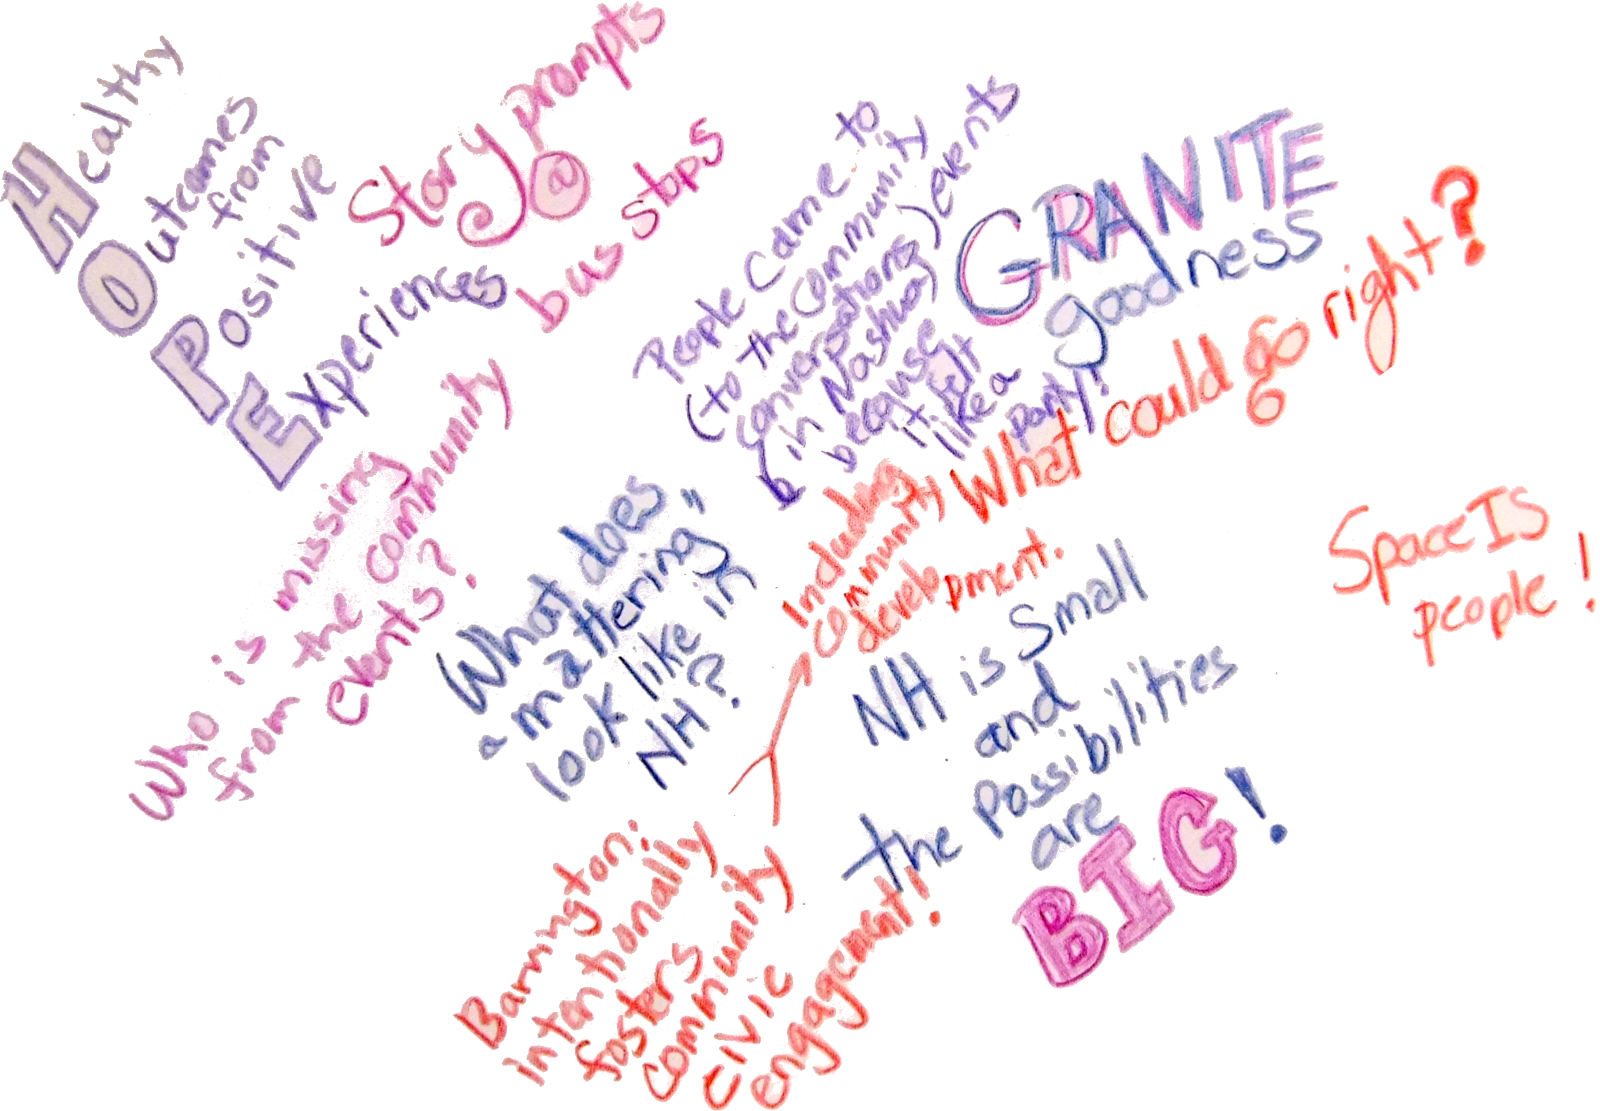 Healthy
Outcomes
from
Positive
Experiences
Story prompts
@
bus stops
People came to
(to the community
conversations) events
(in Nashua)
because
it felt
like a
party!
GRANITE
goodness
What could go right?
Including
community
development.
Space IS
people!
Who is missing
from the community
events?
What does
"mattering"
look like in
NH?
NH is small
and
the possibilities
are
BIG!
Barrington:
intentionally
fosters
community
civic
engagement!